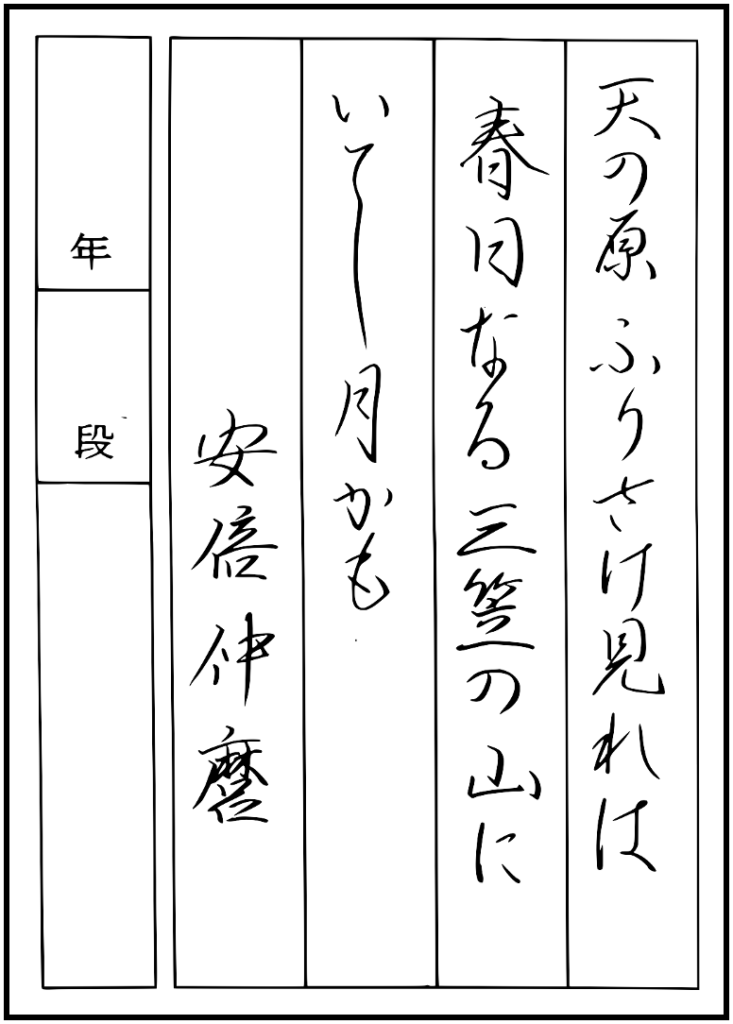 天の原ふりさけ見れは
春日なる三笠の山に
いてし月かも
安倍仲麿
年
段